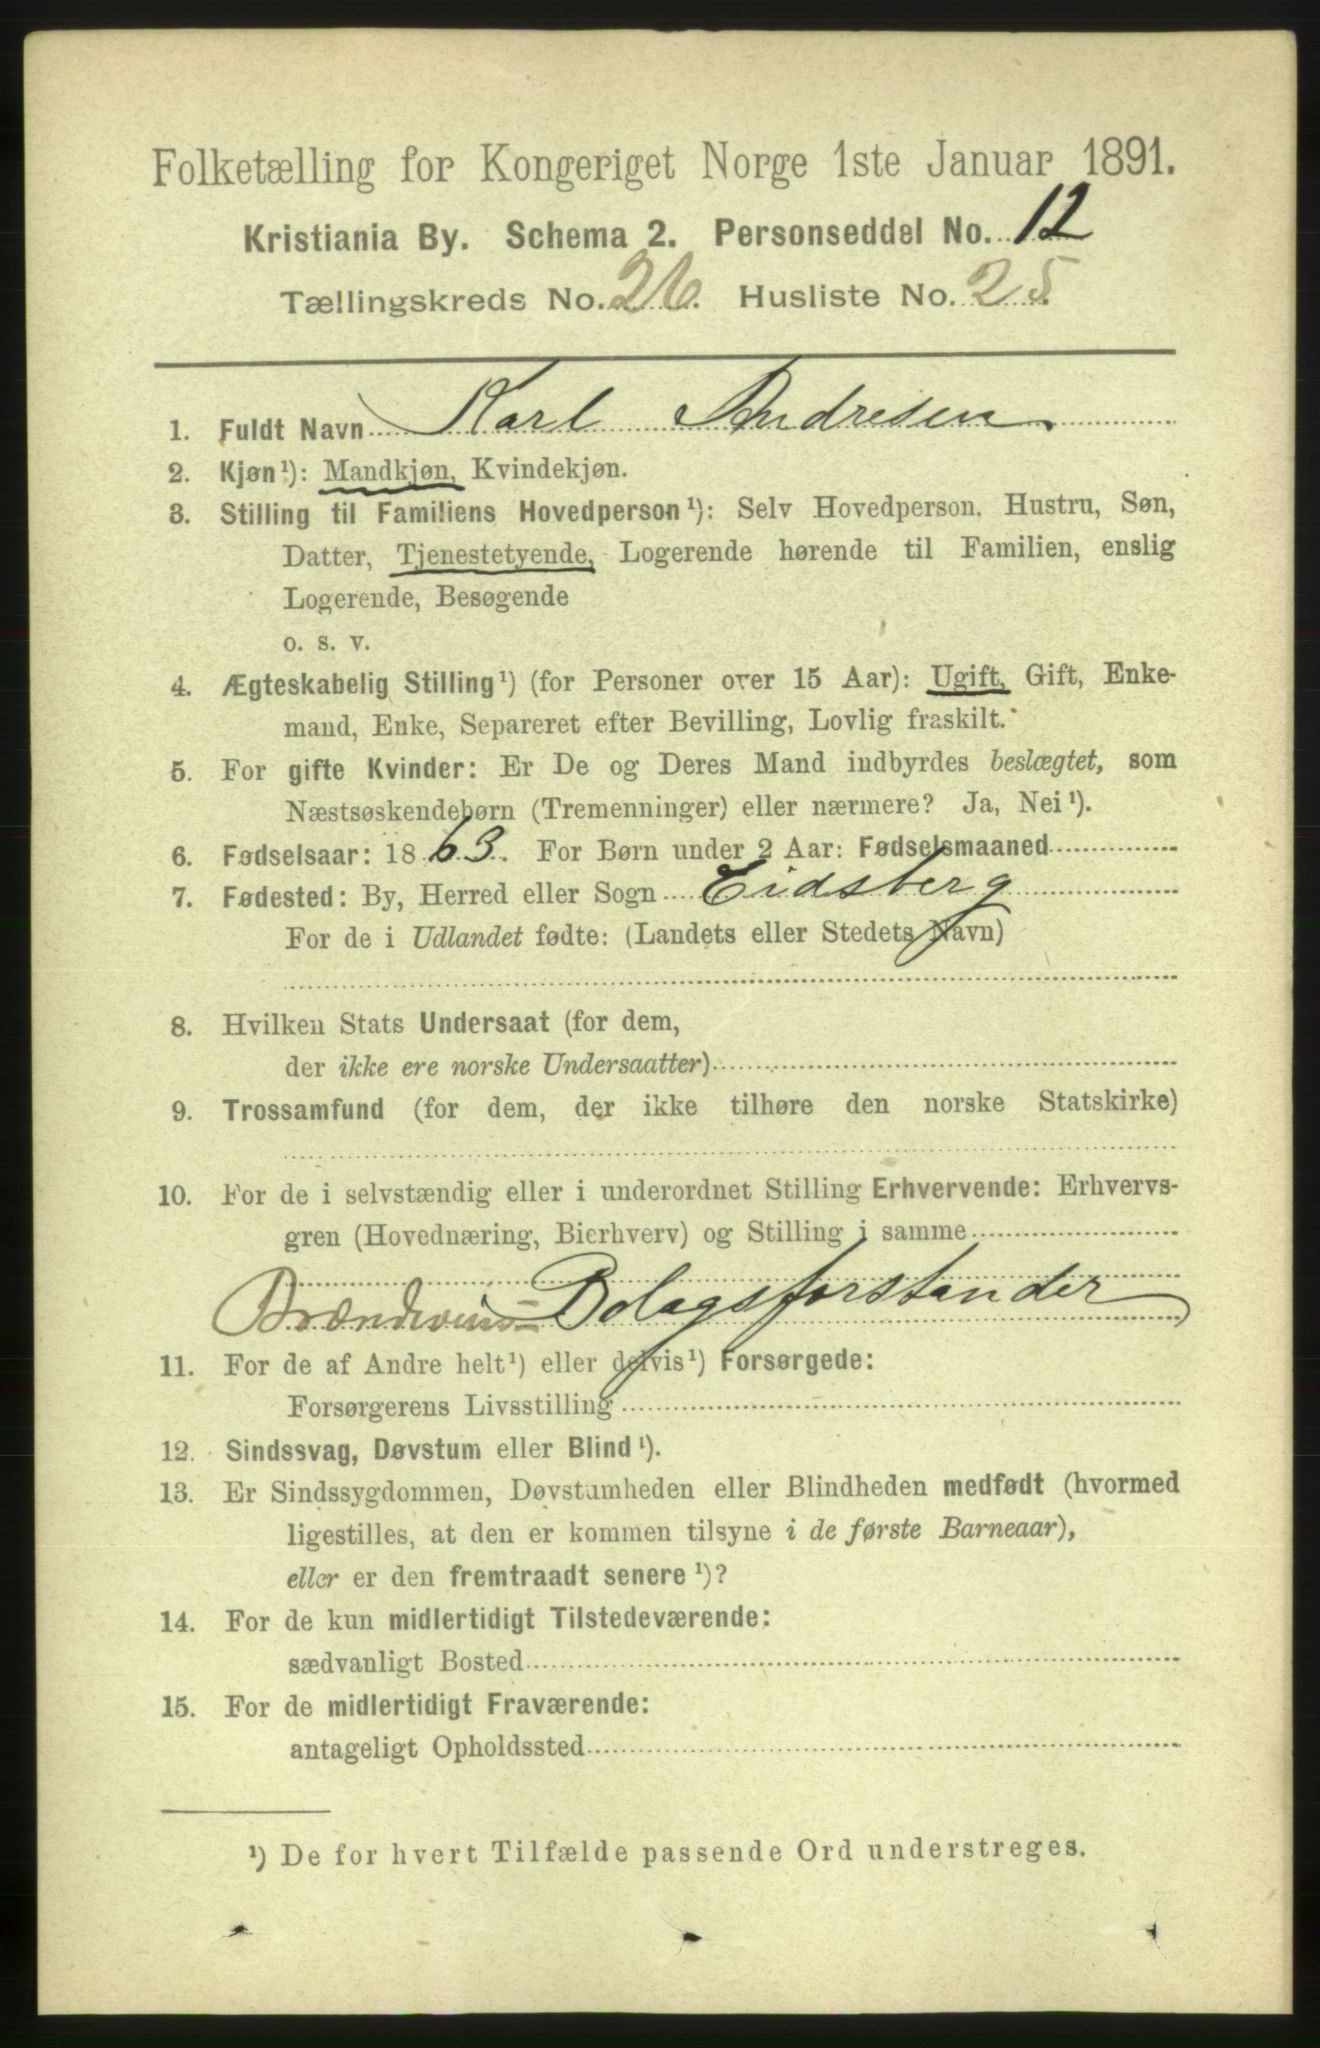 Folketælling for Kongeriget Norge 1ste Januar 1891.
Kristiania By. Schema 2. Personseddel No. 12
Tællingskreds No. 26. Husliste No. 25.
1. Fuldt Navn Karl Andresen.
2. Kjøn¹): Mandkjøn, Kvindekjøn.
3. Stilling til Familiens Hovedperson¹): Selv Hovedperson, Hustru, Søn,
Datter, Tjenestetyende, Logerende hørende til Familien, enslig
Logerende, Besøgende
o. s. v.
4. Ægteskabelig Stilling¹) (for Personer over 15 Aar): Ugift, Gift, Enke-
mand, Enke, Separeret efter Bevilling, Lovlig fraskilt.
5. For gifte Kvinder: Er De og Deres Mand indbyrdes beslægtet, som
Næstsøskendebørn (Tremenninger) eller nærmere? Ja, Nei¹).
6. Fødselsaar: 1863. For Børn under 2 Aar: Fødselsmaaned
7. Fødested: By, Herred eller Sogn Eidsberg
For de i Udlandet fødte: (Landets eller Stedets Navn)
8. Hvilken Stats Undersaat (for dem,
der ikke ere norske Undersaatter)
9. Trossamfund (for dem, der ikke tilhøre den norske Statskirke)
10. For de i selvstændig eller i underordnet Stilling Erhvervende: Erhvervs-
gren (Hovednæring, Bierhverv) og Stilling i samme
Brændevins= Bolagsforstander
11. For de af Andre helt¹) eller delvis¹) Forsørgede:
Forsørgerens Livsstilling
12. Sindssvag, Døvstum eller Blind¹).
13. Er Sindssygdommen, Døvstumheden eller Blindheden medfødt (hvormed
ligestilles, at den er kommen tilsyne i de første Barneaar),
eller er den fremtraadt senere¹)?
14. For de kun midlertidigt Tilstedeværende:
sædvanligt Bosted
15. For de midlertidigt Fraværende:
antageligt Opholdssted
¹) De for hvert Tilfælde passende Ord understreges.